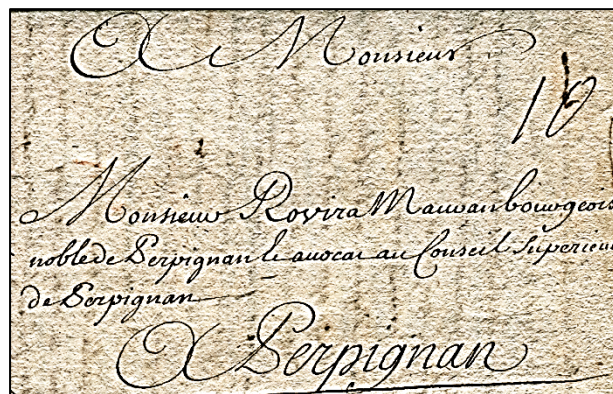 A Monsieur
10
Monsieur Rovira Mauran bourgeois
noble de Perpignan & avocat au Conseil Superieur
de Perpignan
A Perpignan